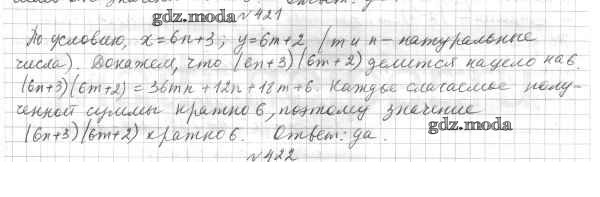 gdz.moda
№421
По условию, x=6n+3; y=6m+2, (m и n - натуральные
числа). Докажем, что (6n+3)(6m+2) делится нацело на 6.
(6n+3)(6m+2) = 36mn+12n+18m+6. Каждое слагаемое полу-
ченной суммы кратно 6, поэтому значение
(6n+3)(6m+2) кратно 6. Ответ: да.
gdz.moda
№422